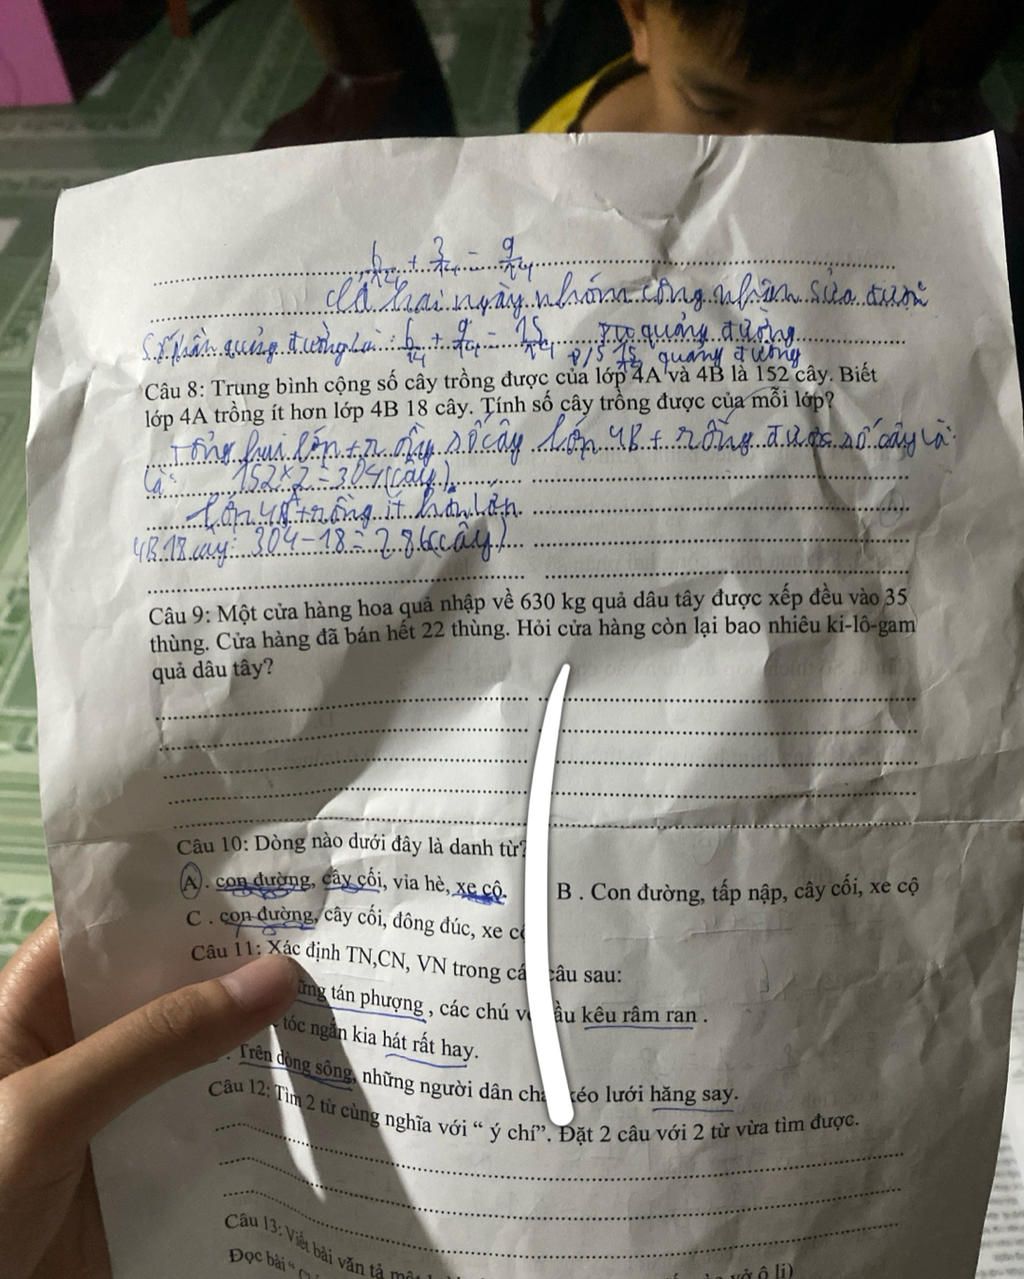 6/24 + 3/24 = 9/24
Cả hai ngày nhóm công nhân sửa được
Số phần quãng đường là: 6/24 + 9/24 = 15/24 quãng đường
Đ/S 15/24 quãng đường
Câu 8: Trung bình cộng số cây trồng được của lớp 4A và 4B là 152 cây. Biết
lớp 4A trồng ít hơn lớp 4B 18 cây. Tính số cây trồng được của mỗi lớp?
Tổng hai lớp trồng số cây lớp 4B trồng được số cây là:
là: 152×2=304(cây)
lớp 4A trồng ít hơn lớp
4B 18 cây: 304-18=286(cây)
Câu 9: Một cửa hàng hoa quả nhập về 630 kg quả dâu tây được xếp đều vào 35
thùng. Cửa hàng đã bán hết 22 thùng. Hỏi cửa hàng còn lại bao nhiêu ki-lô-gam
quả dâu tây?
Câu 10: Dòng nào dưới đây là danh từ?
A . con đường, cây cối, vỉa hè, xe cộ. B . Con đường, tấp nập, cây cối, xe cộ
C . con đường, cây cối, đông đúc, xe
Câu 11: Xác định TN,CN, VN trong câu sau:
tán phượng , các chú kêu râm ran .
tóc ngắn kia hát rất hay.
Trên dòng sông, những người dân kéo lưới hăng say.
Câu 12: Tìm 2 từ cùng nghĩa với “ ý chí”. Đặt 2 câu với 2 từ vừa tìm được.
Câu 13: Viết bài văn tả
Đọc bài “ vở ô li)